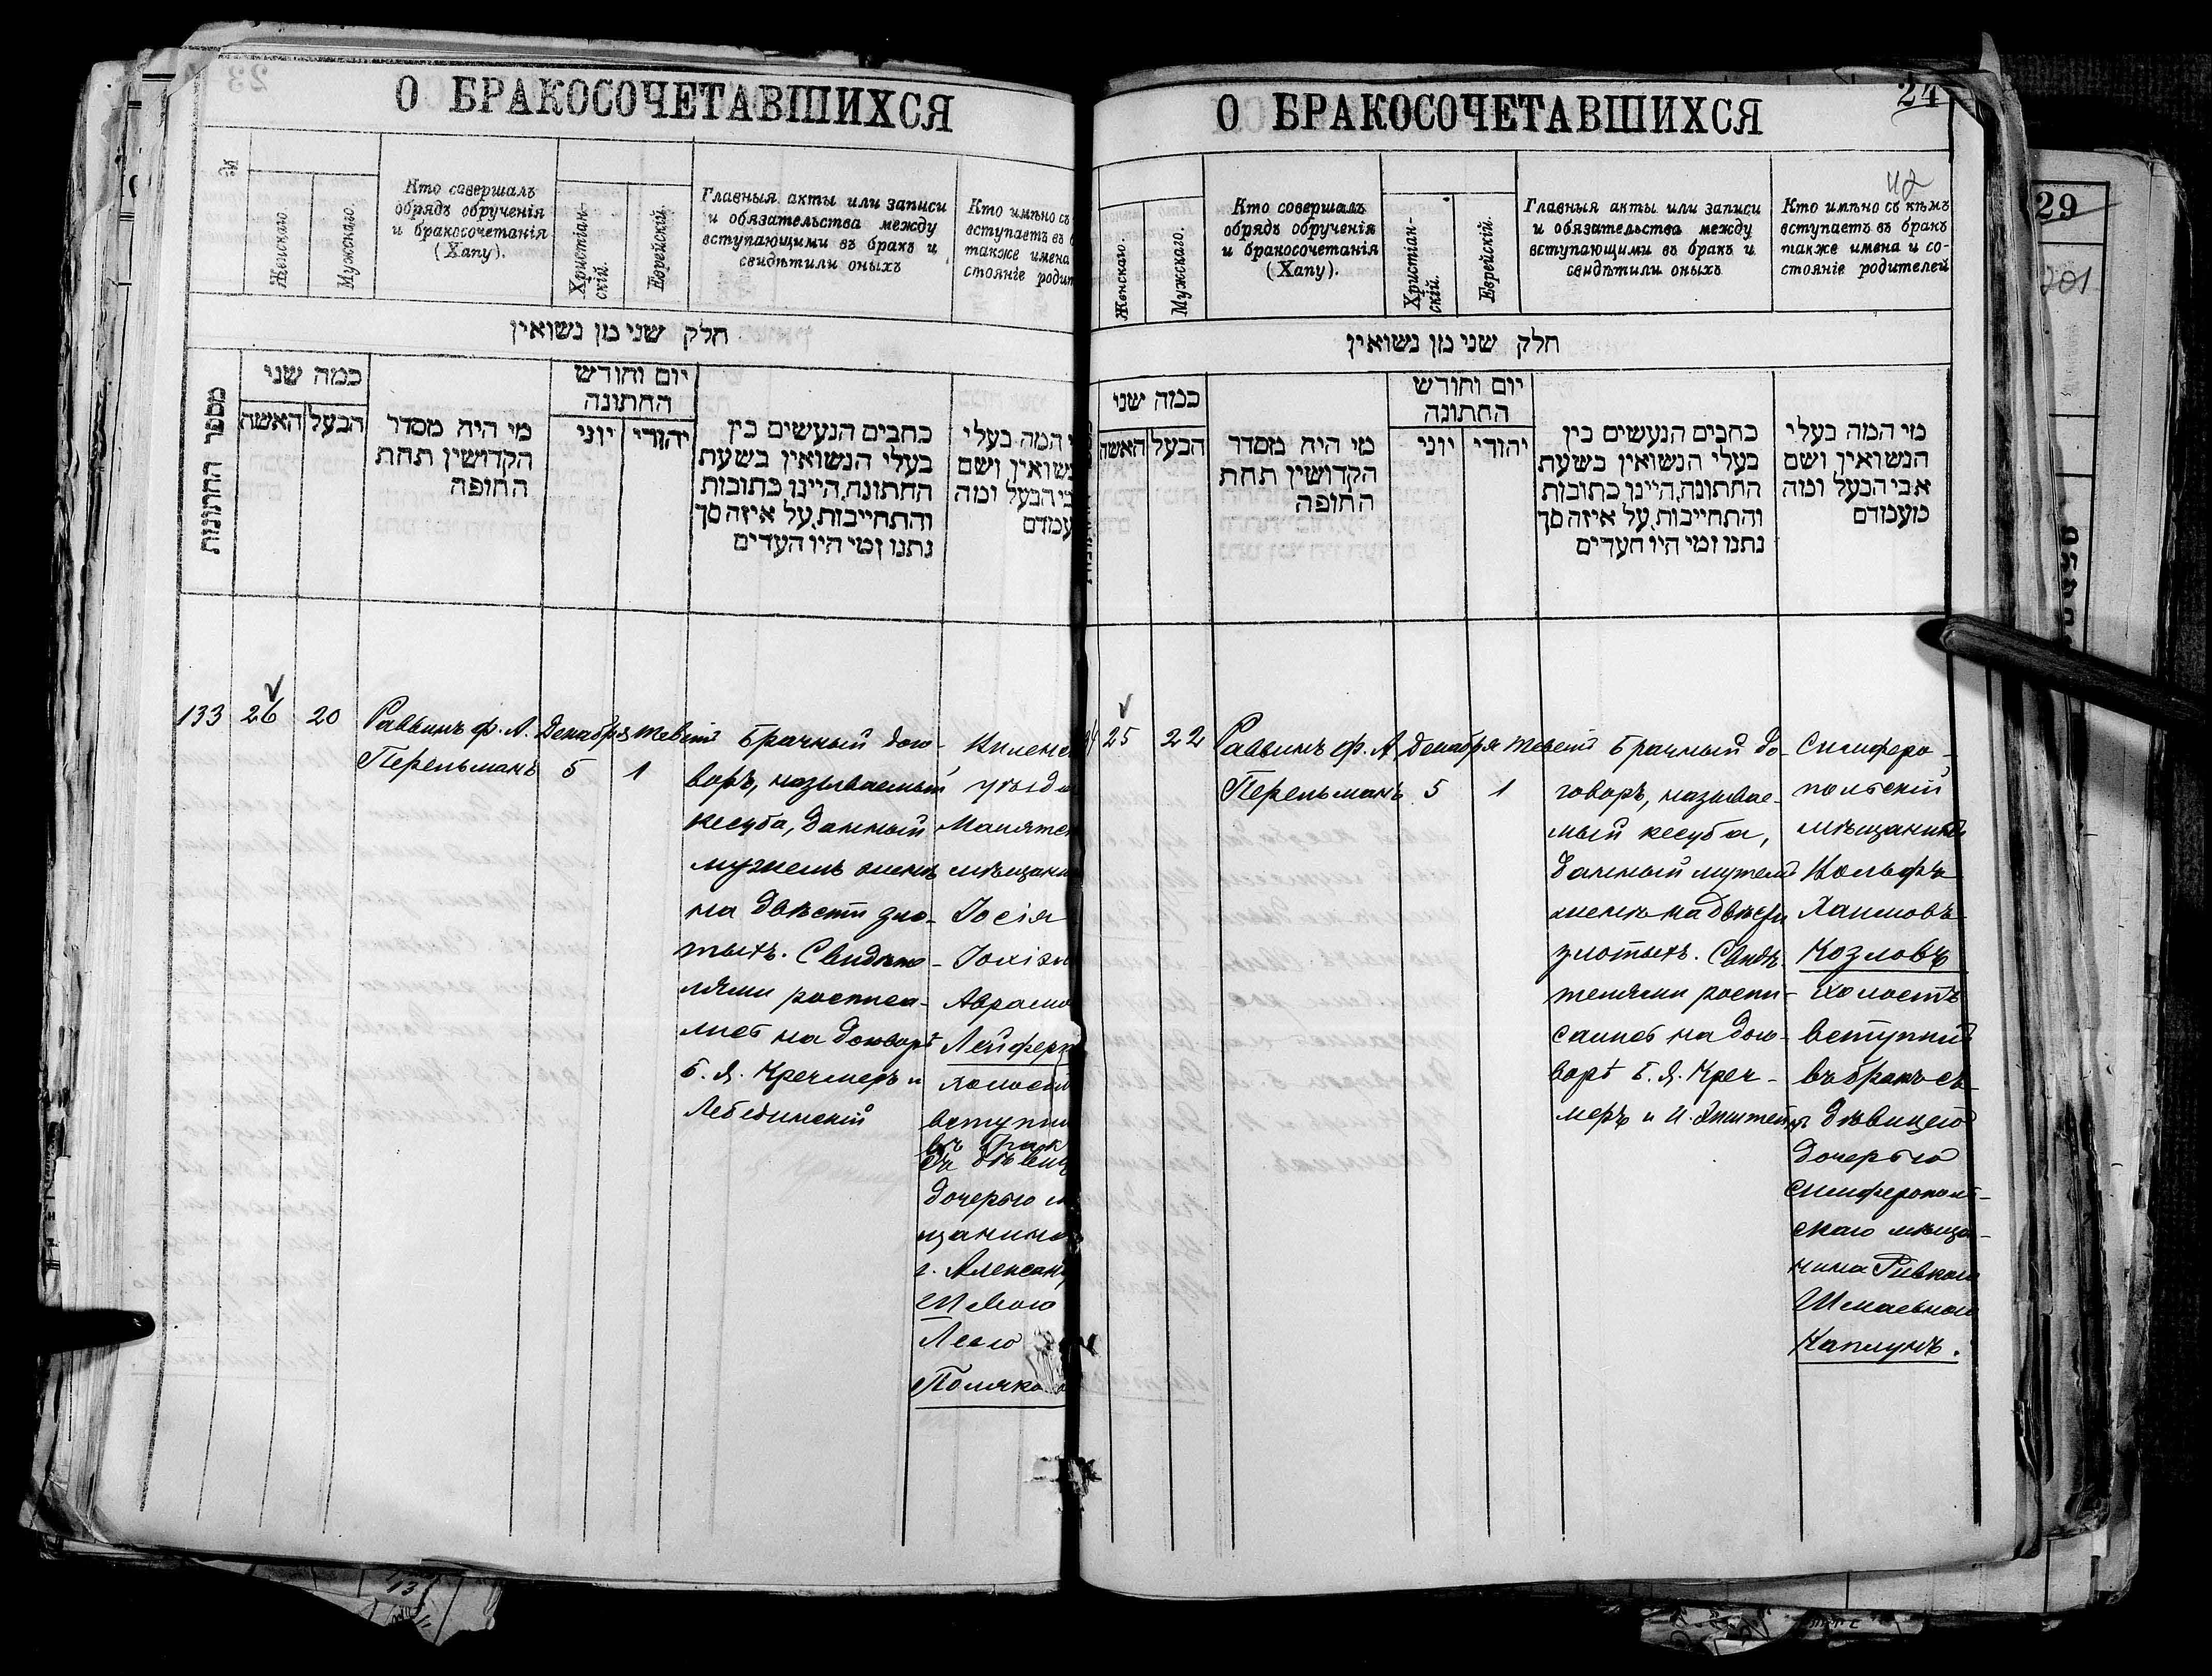 О БРАКОСОЧЕТАВШИХСЯ
№
Женскаго
Мужскаго.
Кто совершалъ
обрядъ обрученія
и бракосочетанія
(Хапу).
Христіан-
скій.
Еврейскій.
Главныя акты или записи
и обязательства между
вступающими въ бракъ и
свидѣтили оныхъ
Кто имѣно съ
вступаетъ въ
также имена
стояніе родит
חלק שני מן נשואין
מספר החתונות
כמה שני
האשה
הבעל
מי היה מסדר
הקדושין תחת
החופה
יום וחודש
החתונה
יוני
יהודי
כתבים הנעשים בין
בעלי הנשואין בשעת
החתונה, היינו כתובות
והתחייבות, על איזה סך
נתנו ומי היו העדים
המה בעלי
נשואין ושם
בי הבעל ומה
עמדם
133
26
20
Раввинъ ф. А.
Перельманъ
Декабря
5
Тевет
1
Брачный дого-
воръ, называемый
кесуба, данный
мужемъ женѣ
на двѣсти зло-
тыхъ. Свидѣте-
лями росписа-
лись на договорѣ
Б. Я. Кречмеръ и
Лебединскій
Виленс
уѣзда
мѣщани
Іосія
Аврамо
Лейфер
холост
вступи
въ брак
съ дѣвиц
дочерью м
щанина
г. Алексан
Лею
Поляко
О БРАКОСОЧЕТАВШИХСЯ
24
42
Женскаго.
Мужскаго.
Кто совершалъ
обрядъ обрученія
и бракосочетанія
(Хапу).
Христіан-
скій.
Еврейскій.
Главныя акты или записи
и обязательства между
вступающими въ бракъ и
свидѣтили оныхъ
Кто имѣно съ кѣмъ
вступаетъ въ бракъ
также имена и со-
стояніе родителей
חלק שני מן נשואין
כמה שני
האשה
הבעל
מי היה מסדר
הקדושין תחת
החופה
יום וחודש
החתונה
יוני
יהודי
כתבים הנעשים בין
בעלי הנשואין בשעת
החתונה, היינו כתובות
והתחייבות, על איזה סך
נתנו ומי היו העדים
מי המה בעלי
הנשואין ושם
אבי הבעל ומה
מעמדם
25
22
Раввинъ ф. А.
Перельманъ
Декабря
5
Тевет
1
Брачный до-
говоръ, называе-
мый кесуба,
данный мужемъ
женѣ на двѣсти
злотыхъ. Свидѣ-
телями роспи-
сались на дого-
ворѣ Б. Я. Креч-
меръ и И. Эпштейнъ
Симферо-
польскій
мѣщанинъ
Вольфъ
Хаимовъ
Козловъ
холостъ
вступилъ
въ бракъ съ
дѣвицею
дочерью
симферополь-
скаго мѣща-
нина Ривкою
Шмаевною
Каплунъ.
29
201